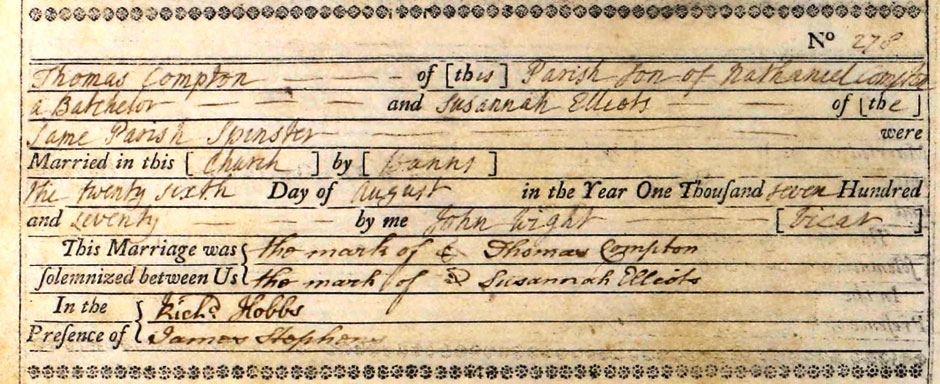 No 278
Thomas Compton of [this] Parish Son of Nathaniel Compton
a Batchelor and Susannah Elliots of [the]
Same Parish Spinster were
Married in this [Church] by [Banns]
the twenty sixth Day of August in the Year One Thousand seven Hundred
and seventy by me John Light [Vicar]
This Marriage was the mark of Thomas Compton
solemnized between Us the mark of Susannah Elliots
In the Richd. Hobbs
Presence of James Stephens